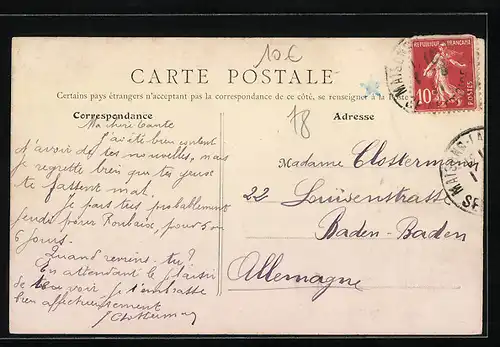 10€
CARTE POSTALE
Certains pays étrangers n'acceptant pas la correspondance de ce côté, se renseigner à la Poste
Correspondance
Ma chère Tante
J'ai été bien content
d'avoir de tes nouvelles, mais
je regrette bien que tes yeux
te fassent mal.
Je pars très probablement
jeudi pour Roubaix, pour 5 ou
6 jours.
Quand reviens-tu?
En attendant le plaisir
de te voir je t'embrasse
bien affectueusement
Clostermann
78
Adresse
Madame Clostermann
22 Louisenstrasse
Baden-Baden
Allemagne
REPUBLIQUE FRANÇAISE
10
POSTES